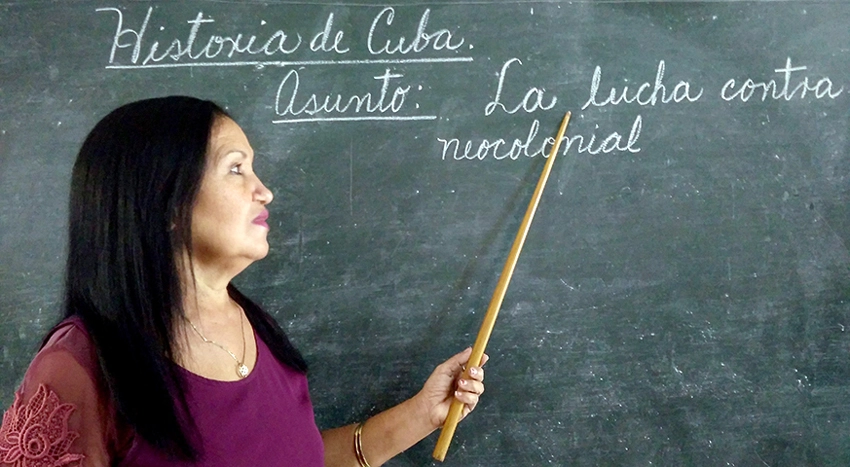 Historia de Cuba.
Asunto: La lucha contra
neocolonial